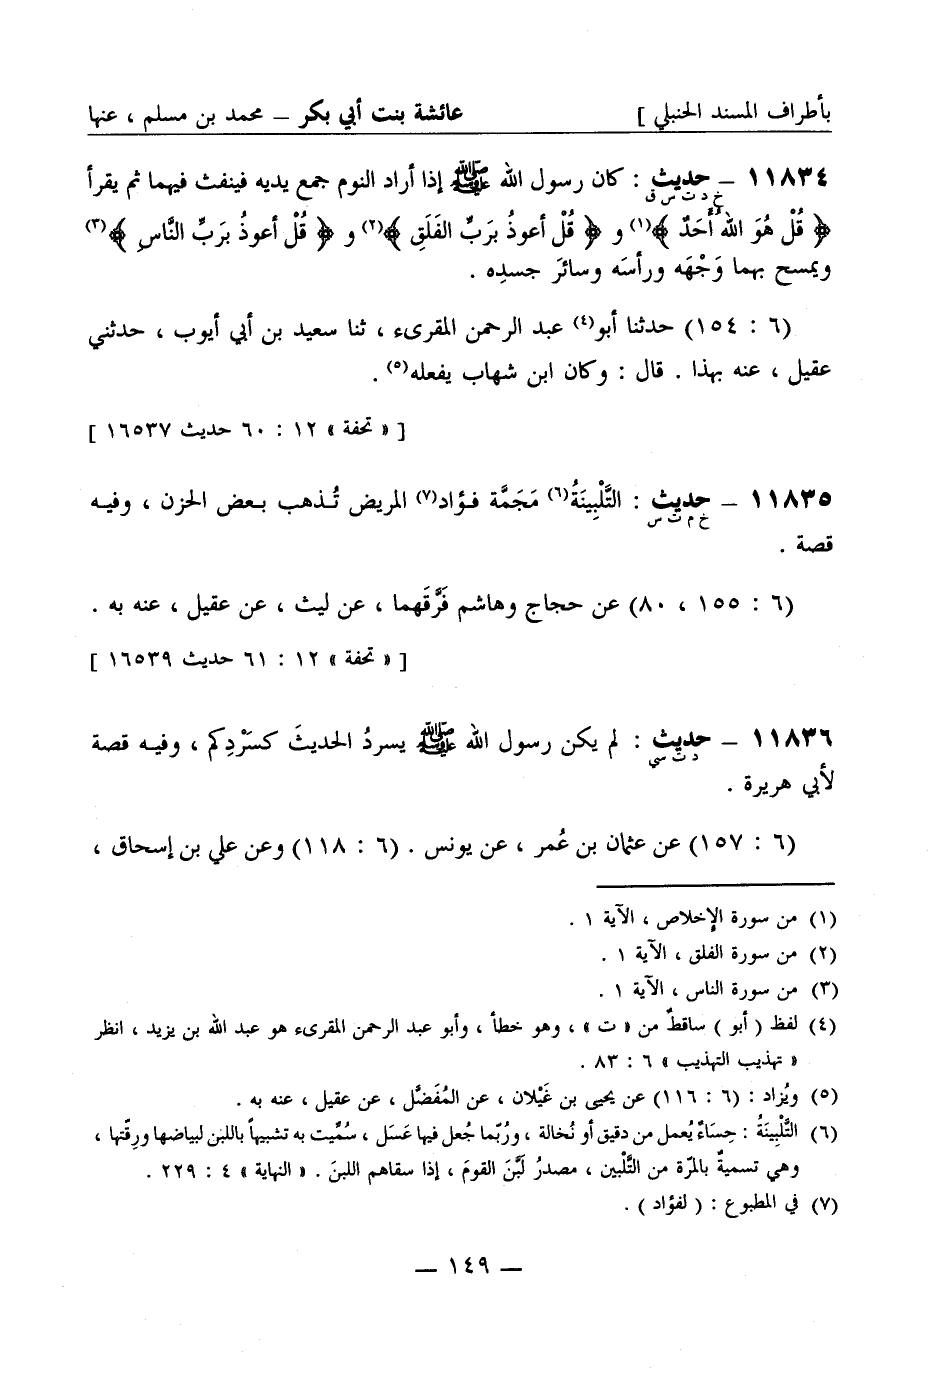 بأطراف المسند الحنبلي ] عائشة بنت أبي بكر ـ محمد بن مسلم ، عنها
١١٨٣٤ ـ حديث : كان رسول الله ﷺ إذا أراد النوم جمع يديه فينفث فيهما ثم يقرأ
خ د ت س ق
﴿ قُلْ هُوَ اللهُ أَحَدٌ ﴾(١) و ﴿ قُلْ أعوذُ بَربِّ الفَلَقِ ﴾(٢) و ﴿ قُلْ أعوذُ بَربِّ النَّاسِ ﴾(٣)
ويمسح بهما وَجْهَه ورأسَه وسائرَ جسدِه .
(٦ : ١٥٤) حدثنا أبو(٤) عبد الرحمن المقرىء ، ثنا سعيد بن أبي أيوب ، حدثني
عقيل ، عنه بهذا . قال : وكان ابن شهاب يفعله(٥) .
[ « تحفة » ١٢ : ٦٠ حديث ١٦٥٣٧ ]
١١٨٣٥ ـ حديث : التَّلْبِينَةُ(٦) مَجَمَّة فؤاد(٧) المريض تُذهب بعض الحزن ، وفيه
خ م ت س
قصة .
(٦ : ١٥٥ ، ٨٠) عن حجاج وهاشم فَرَّقَهما ، عن ليث ، عن عقيل ، عنه به .
[ « تحفة » ١٢ : ٦١ حديث ١٦٥٣٩ ]
١١٨٣٦ ـ حديث : لم يكن رسول الله ﷺ يسردُ الحديثَ كسَرْدِكم ، وفيه قصة
د ت سي
لأبي هريرة .
(٦ : ١٥٧) عن عثمان بن عُمر ، عن يونس . (٦ : ١١٨) وعن علي بن إسحاق ،
(١) من سورة الإخلاص ، الآية ١ .
(٢) من سورة الفلق ، الآية ١ .
(٣) من سورة الناس ، الآية ١ .
(٤) لفظ ( أبو ) ساقطٌ من « ت » ، وهو خطأ ، وأبو عبد الرحمن المقرىء هو عبد الله بن يزيد ، انظر
« تهذيب التهذيب » ٦ : ٨٣ .
(٥) ويُزاد : (٦ : ١١٦) عن يحيى بن غَيْلان ، عن المُفَضَّل ، عن عقيل ، عنه به .
(٦) التَّلْبِينَةُ : حِسَاءٌ يُعمل من دقيق أو نُخالة ، ورُبّما جُعل فيها عَسَل ، سُمِّيت به تشبيهاً باللبن لبياضها ورِقّتها ،
وهي تسميةٌ بالمرّة من التَّلْبين ، مصدرُ لَبَّنَ القومَ ، إذا سقاهم اللبنَ . « النهاية » ٤ : ٢٢٩ .
(٧) في المطبوع : ( لفؤاد ) .
ـ ١٤٩ ـ